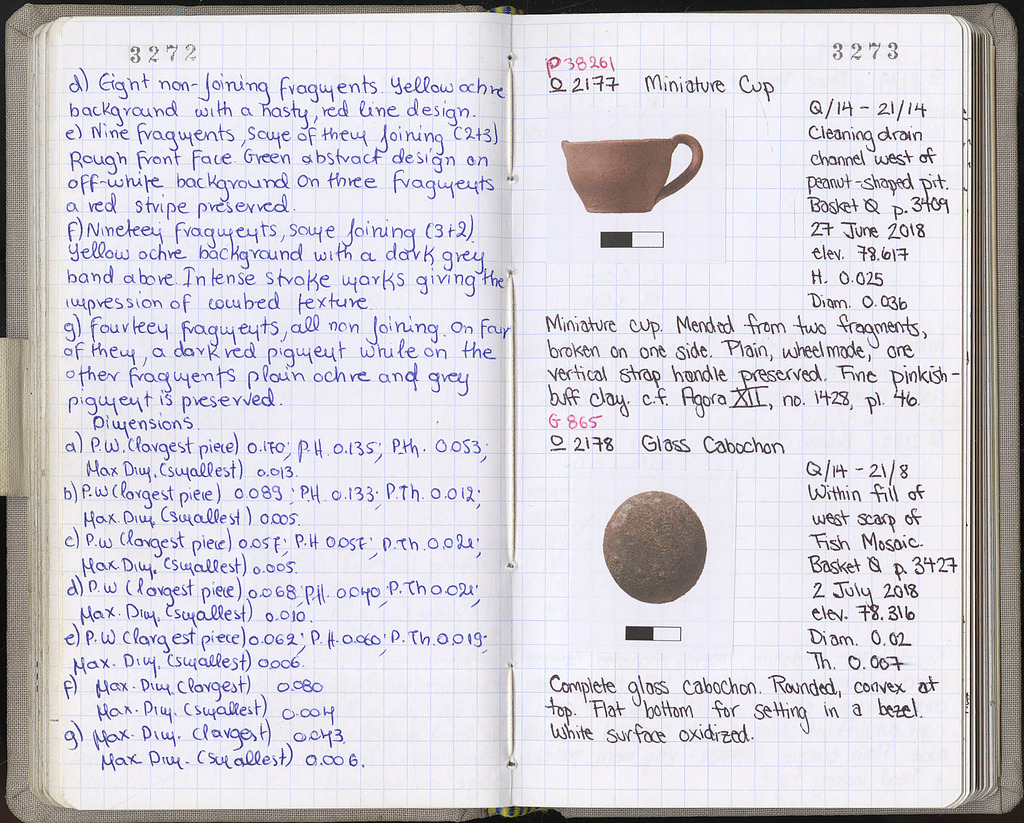 3272
d) Eight non-joining fragments. Yellow ochre
background with a hasty, red line design.
e) Nine fragments, some of them joining (2+3)
Rough front face. Green abstract design on
off-white background On three fragments
a red stripe preserved.
f) Nineteen fragments, some joining (3+2).
Yellow ochre background with a dark grey
band above. Intense stroke marks giving the
impression of combed texture.
g) Fourteen fragments, all non joining. On four
of them, a dark red pigment while on the
other fragments plain ochre and grey
pigment is preserved.
Dimensions.
a) P.W. (largest piece) 0.170; P.H. 0.135; P.th. 0.053;
Max Dim. (smallest) 0.013.
b) P.W (largest piece) 0.089; P.H. 0.133; P.Th. 0.012;
Max. Dim. (smallest) 0.005.
c) P.W (largest piece) 0.057; P.H 0.057; P.Th. 0.021;
Max. Dim. (smallest) 0.005.
d) P.W (largest piece) 0.068, P.H. 0.040, P.Th 0.021;
Max. Dim. (smallest) 0.010.
e) P.W (largest piece) 0.062; P.H. 0.060; P.Th. 0.019;
Max. Dim. (smallest) 0.006.
f) Max. Dim. (largest) 0.080
Max. Dim. (smallest) 0.004
g) Max. Dim. (largest) 0.043.
Max Dim. (smallest) 0.006.
3273
P 38261
O 2177 Miniature Cup
Q/14 - 21/14
Cleaning drain
channel west of
peanut-shaped pit.
Basket Q p. 3409
27 June 2018
elev. 78.617
H. 0.025
Diam. 0.036
Miniature cup. Mended from two fragments,
broken on one side. Plain, wheelmade, one
vertical strap handle preserved. Fine pinkish-
buff clay. c.f. Agora XII, no. 1428, pl. 46.
G 865
O 2178 Glass Cabochon
Q/14 - 21/8
Within fill of
west scarp of
Fish Mosaic.
Basket Q p. 3427
2 July 2018
elev. 78.316
Diam. 0.02
Th. 0.007
Complete glass cabochon. Rounded, convex at
top. Flat bottom for setting in a bezel.
White surface oxidized.